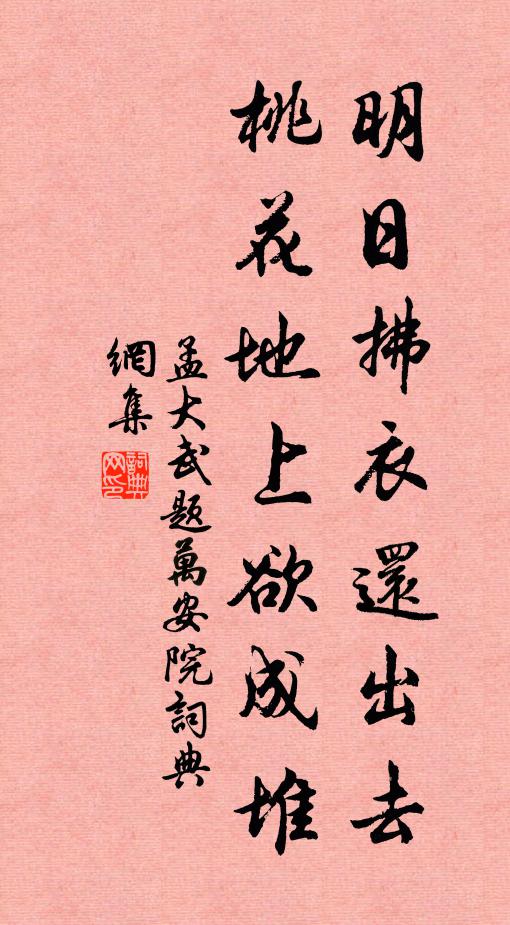 明日拂衣還出去
桃花地上欲成堆
孟大武题萬安院詞典
網集
詞典
网印